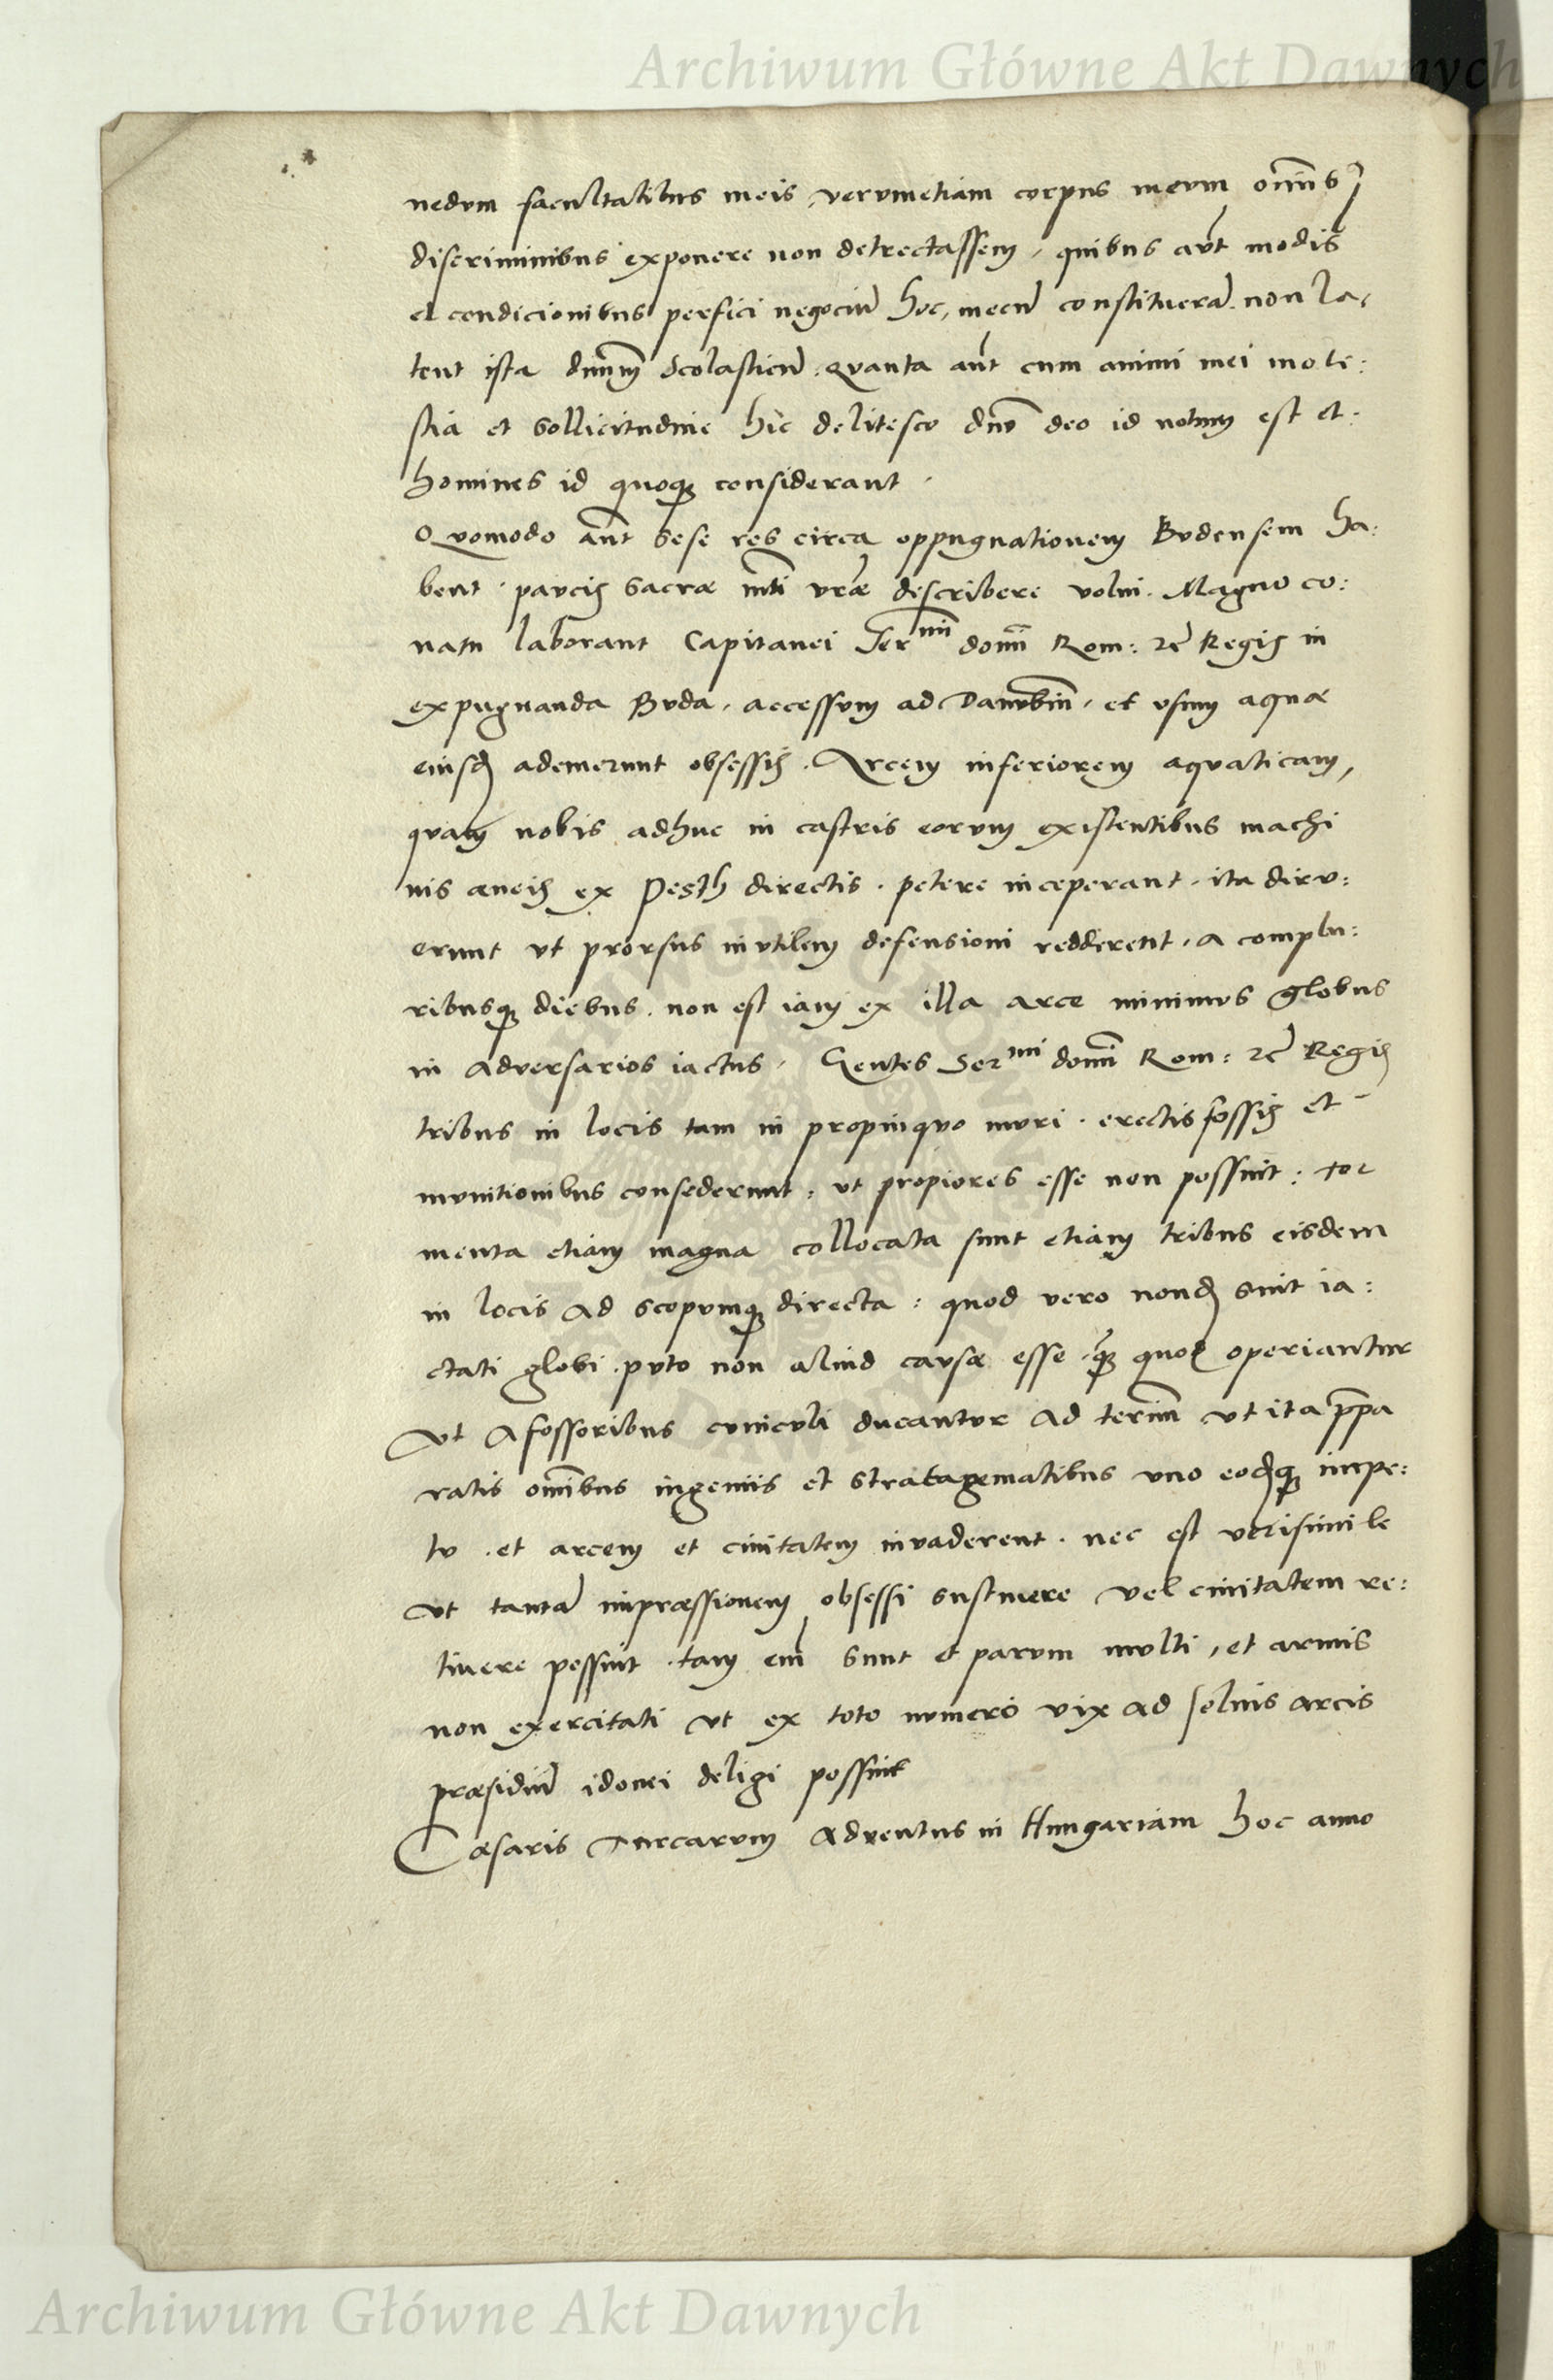 Archiwum Główne Akt Dawnych
nedum facultatibus meis, verumetiam corpus meum om̄ibs
discriminibus exponere non detrectassem, quibus aūt modis
et condicionibus perfici negociū hoc, mecū constituerā. non la,
tent ista dnum Scolasticū. Quanta aūt cum animi mei mole:
stia et sollicitudine hic delitesco dn̄o deo id notum est et:
homines id quoq; considerant.
Quomodo aūt sese res circa oppugnationem Budensem ha:
bent. paucis sacrae mti vrae describere volui. Magno co:
natu laborant Capitanei Sermi domī Rom: zc Regis in
expugnanda Buda, accessum ad Danubiū, et usum aquae
eiusd ademerunt obsessis. Arcem inferiorem aquaticam,
quam nobis adhuc in castris eorum existentibus machi
nis aeneis ex Pesth directis. petere inceperant, ita diru:
erunt ut prorsus inutilem defensioni redderent, a complu:
ribusq; diebus. non est iam ex illa arce minimus globus
in adversarios iactus. Gentes Sermi domī Rom: zc Regis
tribus in locis tam in propinquo muri. erectis fossis et
munitionibus consederunt, ut propiores esse non possint: tor
menta etiam magna collocata sunt etiam tribus eisdem
in locis ad scopumq; directa: quod vero nond sint ia:
ctati globi. puto non aliud causae esse. q̄ quod operiantur
Ut a fossoribus cuniculi ducantur ad termī ut ita p̄pa
ratis om̄ibus ingeniis et stratagematibus uno eodq; impe:
tu. et arcem et civitatem invaderent. nec est verisimile
ut tantā impraessionem obsessi sustinere vel civitatem re:
tinere possint. tam em̄ sunt et parum multi, et armis
non exercitati ut ex toto numero vix ad solius arcis
praesidiū idonei deligi possint
Caesaris Turcarum adventus in Hungariam hoc anno
Archiwum Główne Akt Dawnych